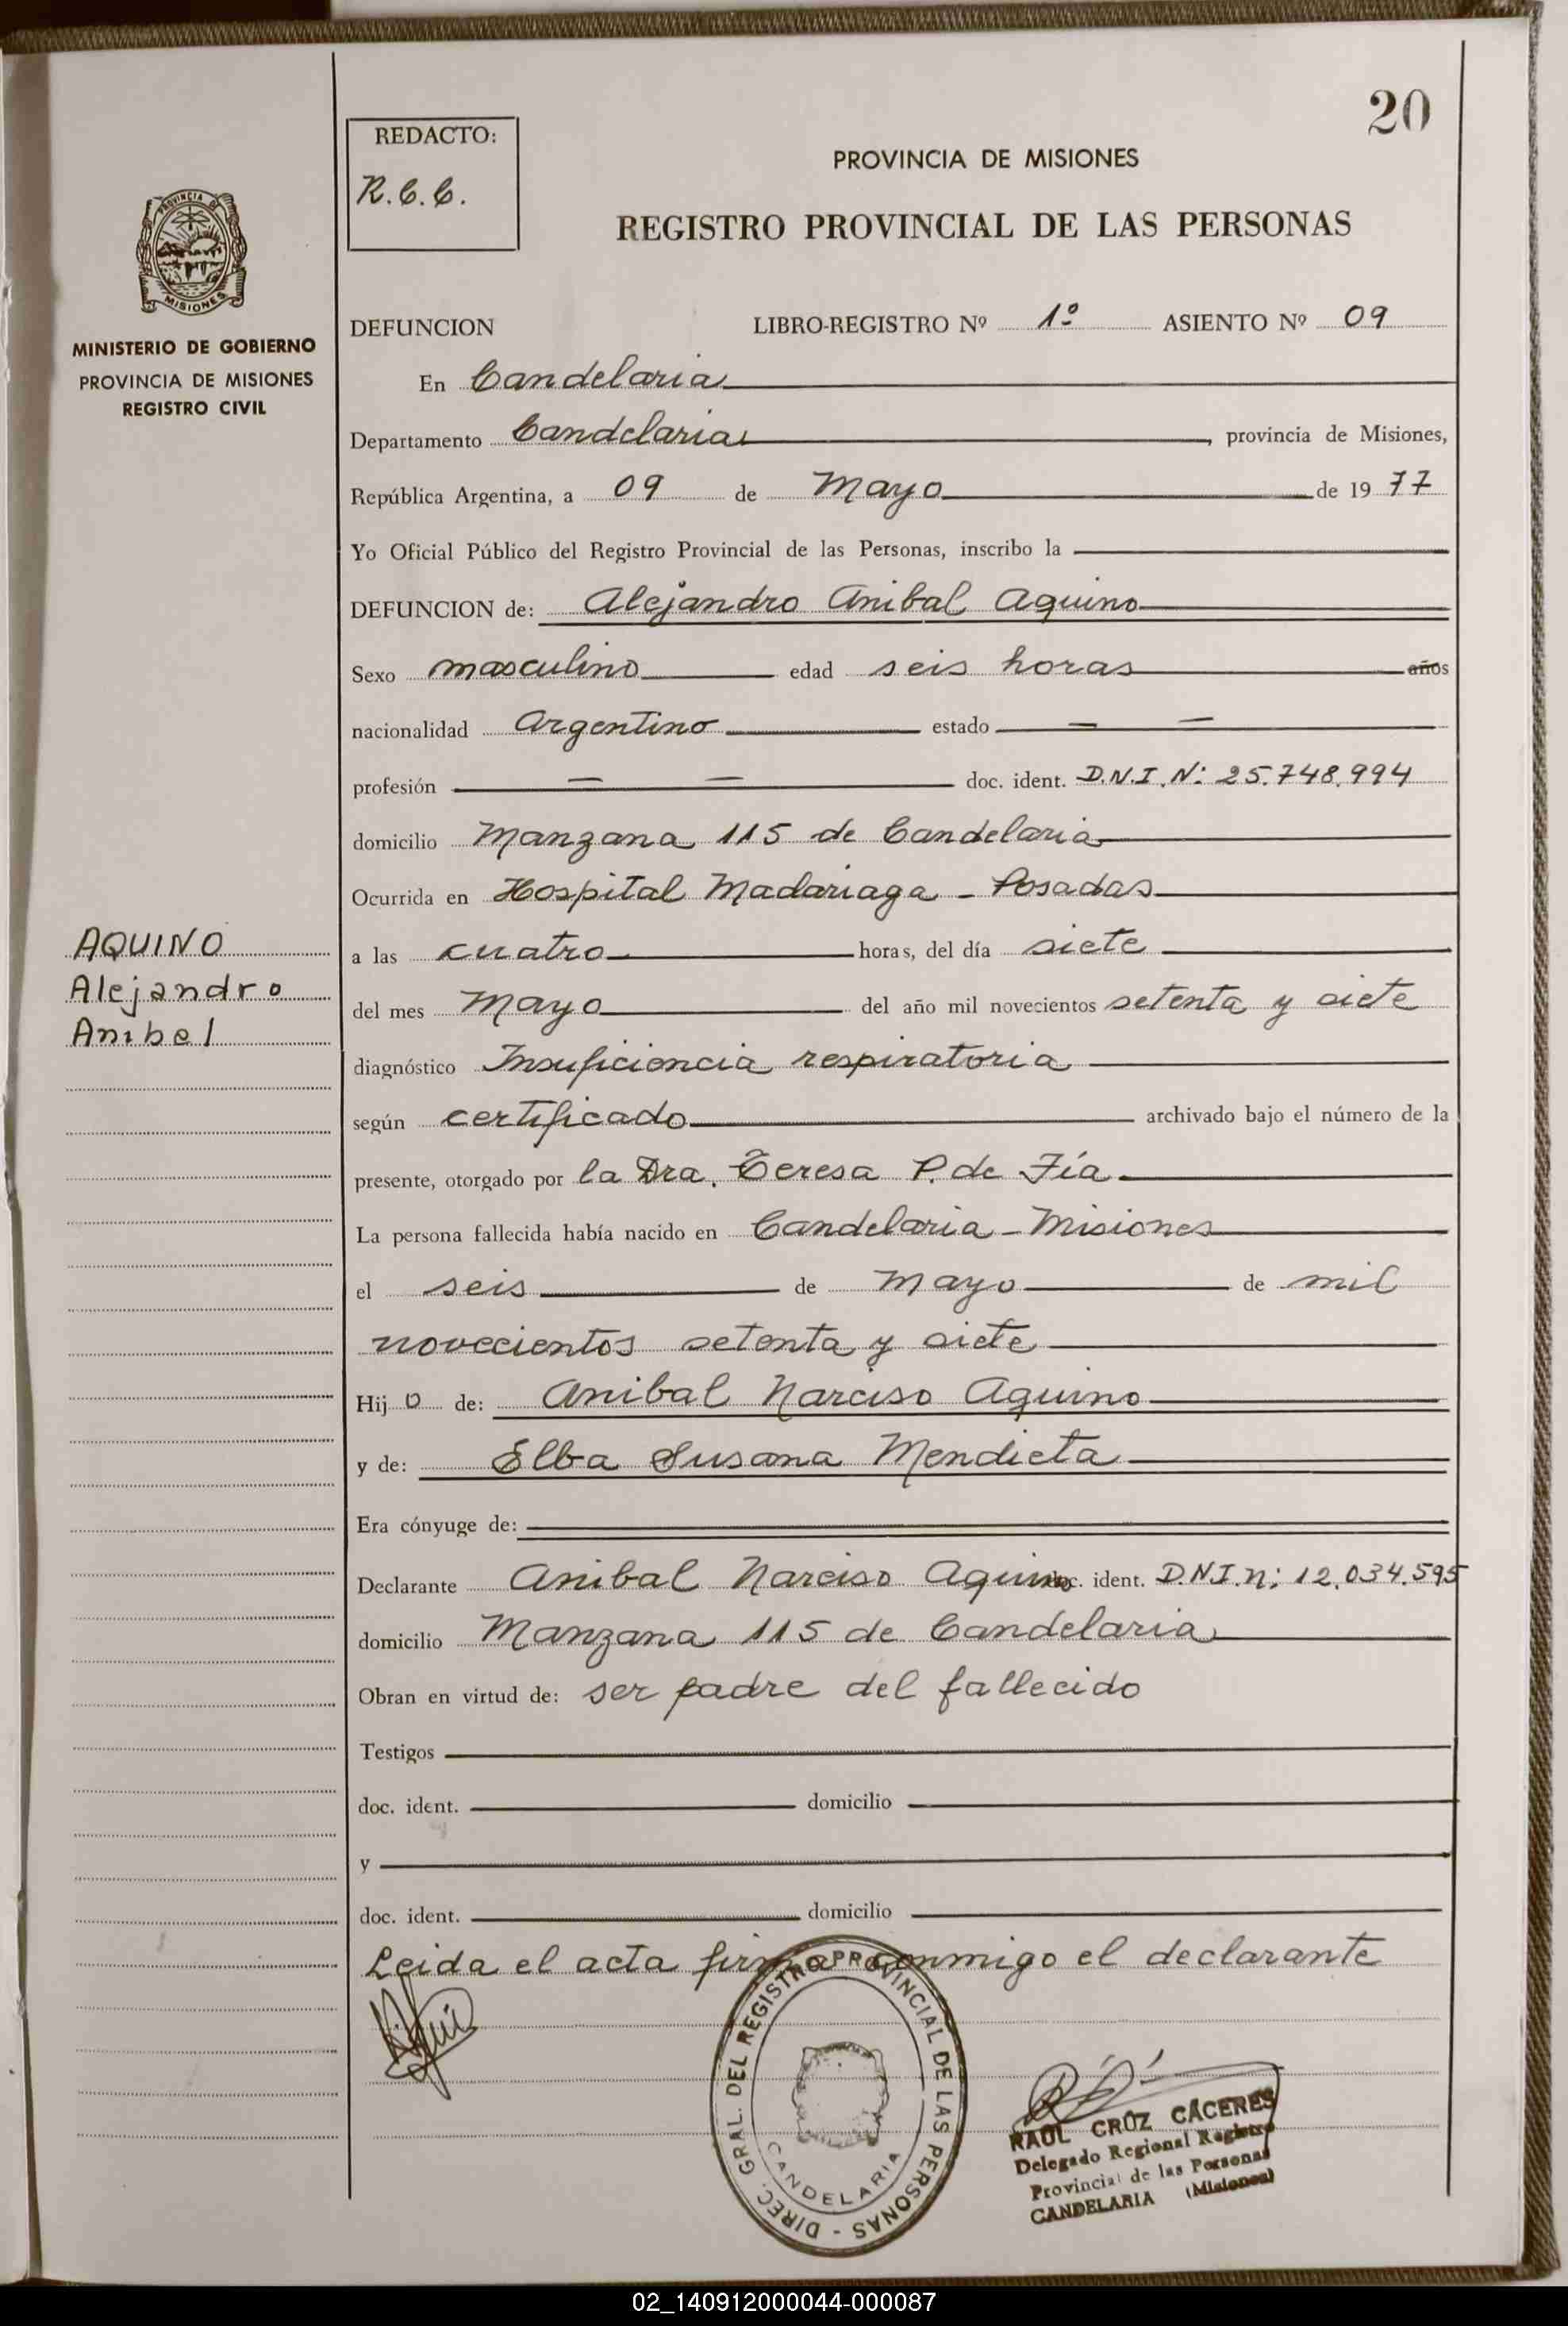 20
REDACTO:
R.C.C.
PROVINCIA DE MISIONES
REGISTRO PROVINCIAL DE LAS PERSONAS
PROVINCIA DE
MISIONES
MINISTERIO DE GOBIERNO
PROVINCIA DE MISIONES
REGISTRO CIVIL
DEFUNCION LIBRO-REGISTRO Nº 1º ASIENTO Nº 09
En Candelaria
Departamento Candelaria, provincia de Misiones,
República Argentina, a 09 de Mayo de 1977
Yo Oficial Público del Registro Provincial de las Personas, inscribo la
DEFUNCION de: Alejandro Anibal Aquino
Sexo masculino edad seis horas años
nacionalidad Argentino estado — —
profesión — — doc. ident. D.N.I. Nº 25.748.994
domicilio Manzana 115 de Candelaria
Ocurrida en Hospital Madariaga - Posadas
AQUINO
Alejandro
Anibal
a las cuatro horas, del día siete
del mes Mayo del año mil novecientos setenta y siete
diagnóstico Insuficiencia respiratoria
según certificado archivado bajo el número de la
presente, otorgado por la Dra. Teresa P. de Fía
La persona fallecida había nacido en Candelaria - Misiones
el seis de Mayo de mil
novecientos setenta y siete
Hijo de: Anibal Narciso Aquino
y de: Elba Susana Mendieta
Era cónyuge de:
Declarante Anibal Narciso Aquino doc. ident. D.N.I. nº 12.034.595
domicilio Manzana 115 de Candelaria
Obran en virtud de: ser padre del fallecido
Testigos
doc. ident. domicilio
y
doc. ident. domicilio
Leida el acta firma conmigo el declarante
DIREC. GRAL. DEL REGISTRO PROVINCIAL DE LAS PERSONAS -
CANDELARIA
RAUL CRUZ CACERES
Delegado Regional Registro
Provincial de las Personas
CANDELARIA (Misiones)
02_140912000044-000087